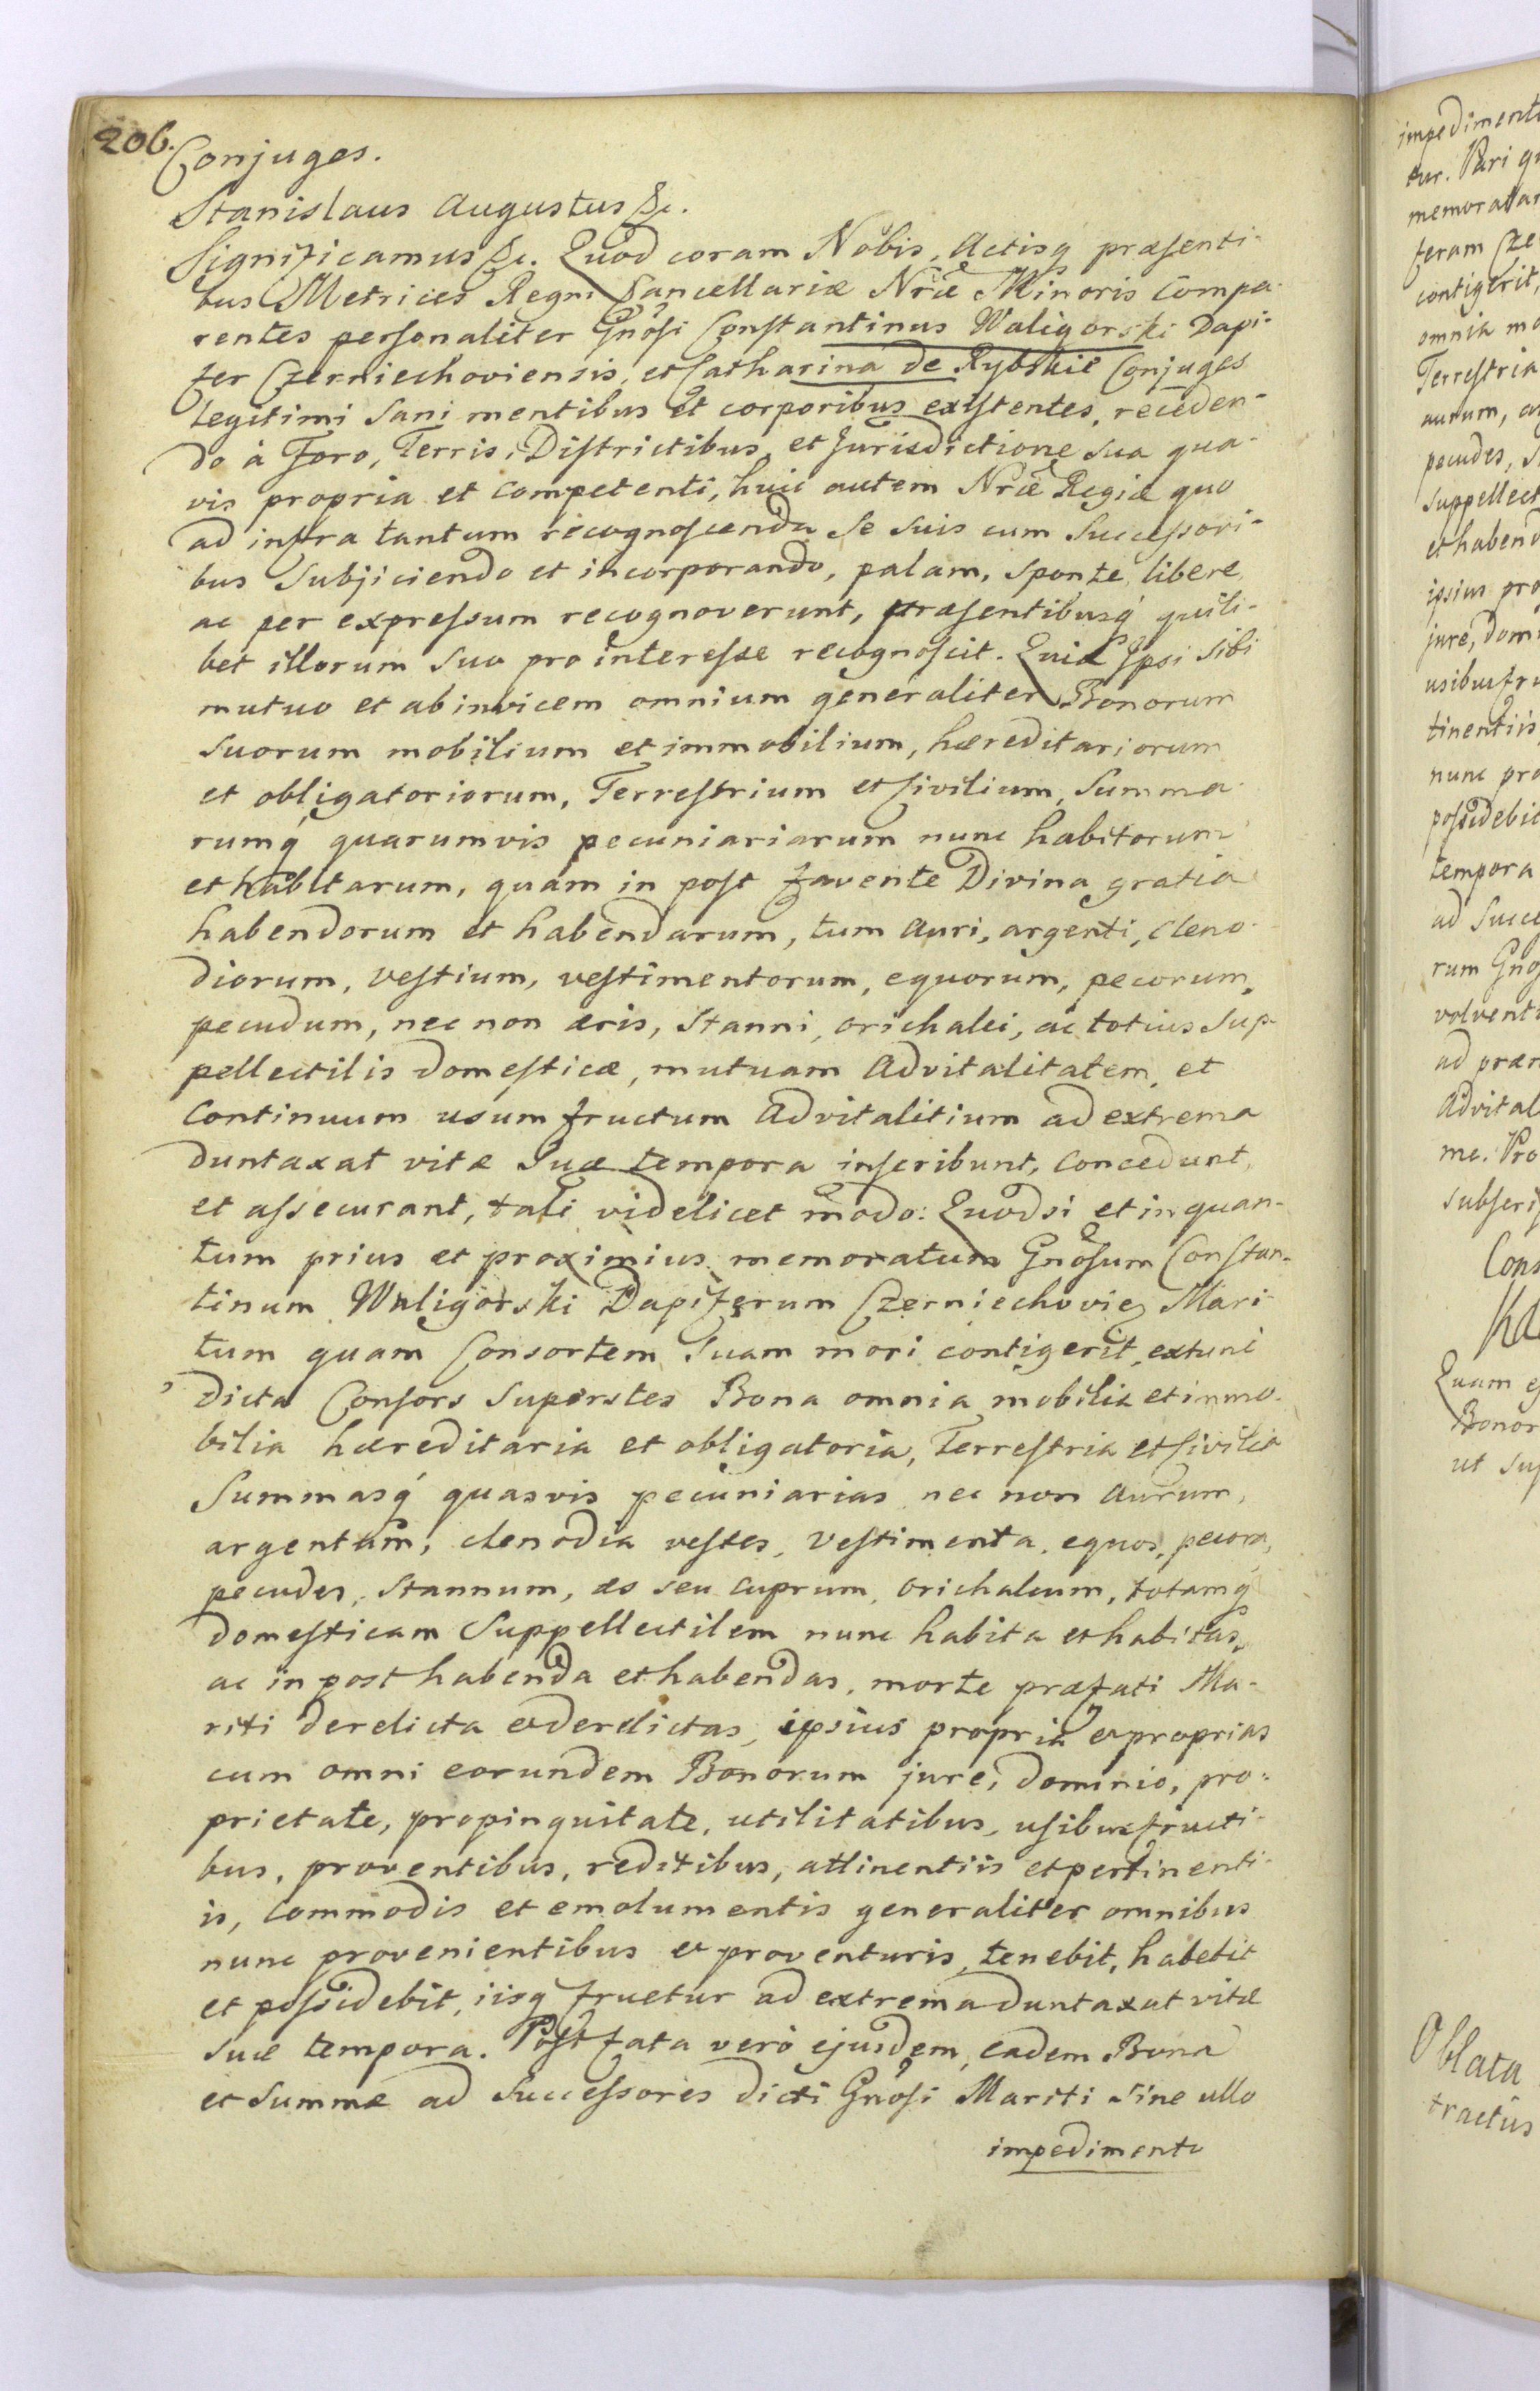 206.
Conjuges.
Stanislaus Augustus &c.
Significamus &c. Quod coram Nobis, Actisq́ præsenti-
bus Metrices Regni Cancellariæ Nr̃æ Minoris Compa-
rentes personaliter Gnõsi Constantinus Waligorski Dapi-
fer Czerniechoviensis, et Catharina de Rybskie Conjuges
Legitimi sani mentibus et corporibus existentes, receden-
do à Foro, Terris, Districtibus, et Jurisdictione sua qua-
vis propria et competenti, huic autem Nr̃æ Regiæ quo
ad infra tantum recognoscenda se suis cum Successori-
bus Subjiciendo et incorporando, palam, sponte, libere,
ac per expressum recognoverunt, præsentibusq́ quili-
bet illorum suo pro interesse recognoscit. Quia Ipsi sibi
mutuo et ab invicem omnium generaliter Bonorum
suorum mobilium et immobilium, hæreditariorum
et obligatoriorum, Terrestrium et Civilium, Summa-
rumq́ quarumvis pecuniariarum nunc habitorum
et habitarum, quàm in post favente Divina gratia
habendorum et habendarum, tum Auri, argenti, cleno-
diorum, vestium, vestimentorum, equorum, pecorum,
pecudum, nec non æris, stanni, orichalci, ac totius sup-
pellectilis domesticæ, mutuam Advitalitatem, et
Continuum usum fructum Advitalitium ad extrema
duntaxat vitæ suæ tempora inscribunt, Concedunt,
et assecurant, tali videlicet modo: Quodsi et in quan-
tum prius et proximius memoratum Gnõsum Constan-
tinum Waligorski Dapiferum Czerniechovieñ Mari-
tum quam Consortem suam mori contigerit, extunc
dicta Consors Superstes Bona omnia mobilia et immo-
bilia hæreditaria et obligatoria, Terrestria et Civilia
Summasq́ quasvis pecuniarias nec non aurum,
argentum, clenodia vestes, Vestimenta, equos, pecora,
pecudes, stannum, æs seu cuprum, orichalcum, totamq́
domesticam Suppellectilem nunc habita et habitas,
ac in post habenda et habendas, morte præfati Ma-
riti derelicta et derelictas, ipsius propria et proprias
cum omni eorundem Bonorum jure, dominio, pro-
prietate, propinquitate, utilitatibus, usibusfructi-
bus, proventibus, reditibus, attinentiis et pertinenti-
is, Commodis et emolumentis generaliter omnibus
nunc provenientibus et proventuris, tenebit, habebit
et possidebit, iisq́ fruetur ad extrema duntaxat vitæ
suæ tempora. Post fata verò ejusdem, eadem Bona
et Summæ ad Successores dicti Gnõsi Mariti sine ullo
impedimento
impedimento
tur. Pari
memorata
feram Cze
contigerit,
omnia mo
Terrestria
aurum,
pecudes,
suppellect
et habend
ipsius pro
jure, dom
usibusfru
tinentiis
nunc pro
possidebit
tempora
ad Succe
rum Gnõ
volvent
ad præm
Advital
me. Pro
subscri
Cons
Ka
Quam
Bonor
ut sup
Oblata
tractus